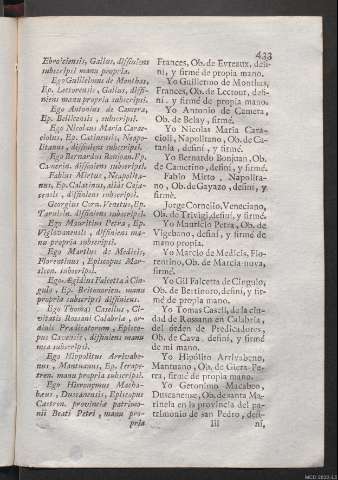 433
Ebroicensis, Gallus, diffiniens
subscripsi manu propria.
Ego Guillelmus de Monthas,
Ep. Lectorensis, Gallus, diffi-
niens manu propria subscripsi.
Ego Antonius de Camera,
Ep. Bellicensis, subscripsi.
Ego Nicolaus Maria Carac-
ciolus, Ep. Cataniensis, Neapo-
litanus, diffiniens subscripsi.
Ego Bernardus Bonjoan. Ep.
Camerin. diffiniens subscripsi.
Fabius Mirtus, Neapolita-
nus, Ep. Calatinus, aliàs Caja-
censis, diffiniens subscripsi.
Georgius Corn. Venetus, Ep.
Tarvisin. diffiniens subscripsi.
Ego Mauritius Petra, Ep.
Viglevanensis, diffiniens ma-
nu propria subscripsi.
Ego Martius de Medicis,
Florentinus, Episcopus Mar-
sican. subscripsi.
Ego Ægidius Falcetta à Cin-
gulo, Ep. Britonorien. manu
propria subscripsi diffiniens.
Ego Thomas Casellus, Ci-
vitatis Rossani Calabria, or-
dinis Prædicatorum, Episco-
pus Cavensis, diffiniens manu
mea subscripsi.
Ego Hippolitus Arrivabe-
nus, Mantuanus, Ep. Ierape-
tren. manu propria subscripsi.
Ego Hieronymus Macha-
bæus, Duscanensis, Episcopus
Castren. provincia patrimo-
nii Beati Petri, manu pro-
pria
Frances, Ob. de Evreaux, defi-
ní, y firmé de propia mano.
Yo Guillermo de Monthas,
Frances, Ob. de Lectour, defi-
ní, y firmé de propia mano.
Yo Antonio de Camera,
Ob. de Belay, firmé.
Yo Nicolas Maria Cara-
cioli, Napolitano, Ob. de Ca-
tania, definí, y firmé.
Yo Bernardo Bonjuan, Ob.
de Camerino, definí, y firmé.
Fabio Mirto, Napolita-
no, Ob. de Gayazo, definí, y
firmé.
Jorge Cornelio, Veneciano,
Ob. de Trivigi, definí, y firmé.
Yo Mauricio Petra, Ob. de
Vigebano, definí, y firmé de
mano propia.
Yo Marcio de Medicis, Flo-
rentino, Ob. de Marcia-nova,
firmé.
Yo Gil Falcetta de Cingulo,
Ob. de Bertinoro, definí, y fir-
mé de propia mano.
Yo Tomas Caseli, de la ciu-
dad de Rossano en Calabria,
del órden de Predicadores,
Ob. de Cava, definí, y firmé
de mi mano.
Yo Hipólito Arrivabeno,
Mantuano, Ob. de Giera-Pe-
tra, firmé de propia mano.
Yo Geronimo Macabeo,
Duscanense, Ob. de santa Ma-
rinela en la provincia del pa-
trimonio de san Pedro, defi-
Iii ní,